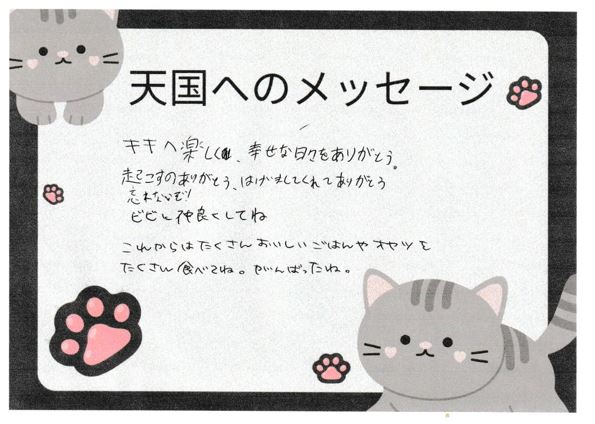 天国へのメッセージ
キキへ楽しく、幸せな日々をありがとう。
起こすのありがとう、はげましてくれてありがとう
忘れないぞ!
ビビと仲良くしてね
これからはたくさんおいしいごはんやオヤツを
たくさん食べてね。がんばったね。